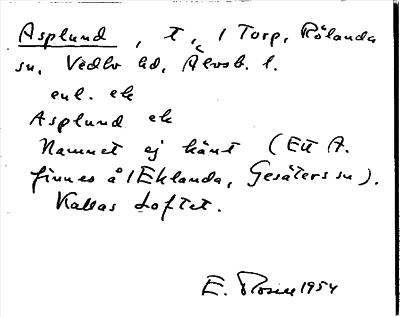 Asplund, t, 1 Torp, Rölanda
sn, Vedbo hd, Älvsb. l.
enl. ek
Asplund ek
Namnet ej känt (Ett A.
finnes å 1 Eklanda, Gesäters sn).
Kallas Loftet.
E. Rosell 1954